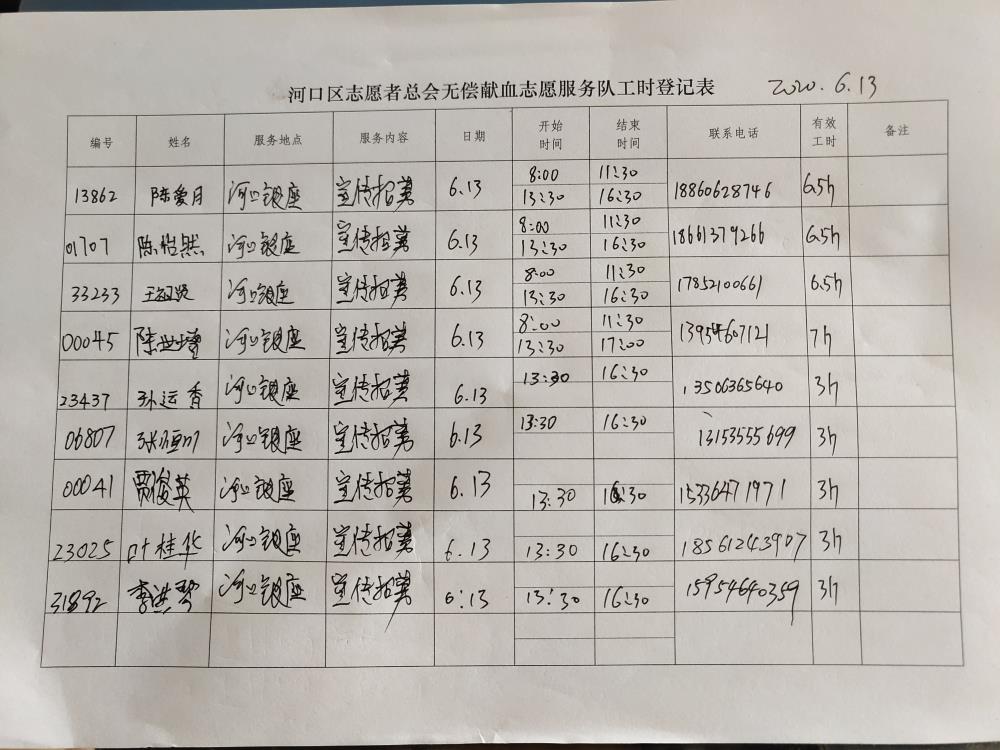 河口区志愿者总会无偿献血志愿服务队工时登记表 2020.6.13
编号 姓名 服务地点 服务内容 日期 开始时间 结束时间 联系电话 有效工时 备注
13862 陈爱月 河口银座 宣传招募 6.13 8:00 11:30 13:30 16:30 18860628746 6.5h
01707 陈怡然 河口银座 宣传招募 6.13 8:00 11:30 13:30 16:30 18661379266 6.5h
33233 河口银座 宣传招募 6.13 8:00 11:30 13:30 16:30 17852100661 6.5h
00045 陈世增 河口银座 宣传招募 6.13 8:00 11:30 13:30 17:00 13954607121 7h
23437 孙运香 河口银座 宣传招募 6.13 13:30 16:30 13506365640 3h
06807 河口银座 宣传招募 6.13 13:30 16:30 13153555699 3h
00041 贾俊英 河口银座 宣传招募 6.13 13:30 16:30 15336471971 3h
23025 叶桂华 河口银座 宣传招募 6.13 13:30 16:30 18561243907 3h
31892 李洪琴 河口银座 宣传招募 6:13 13:30 16:30 15954640359 3h